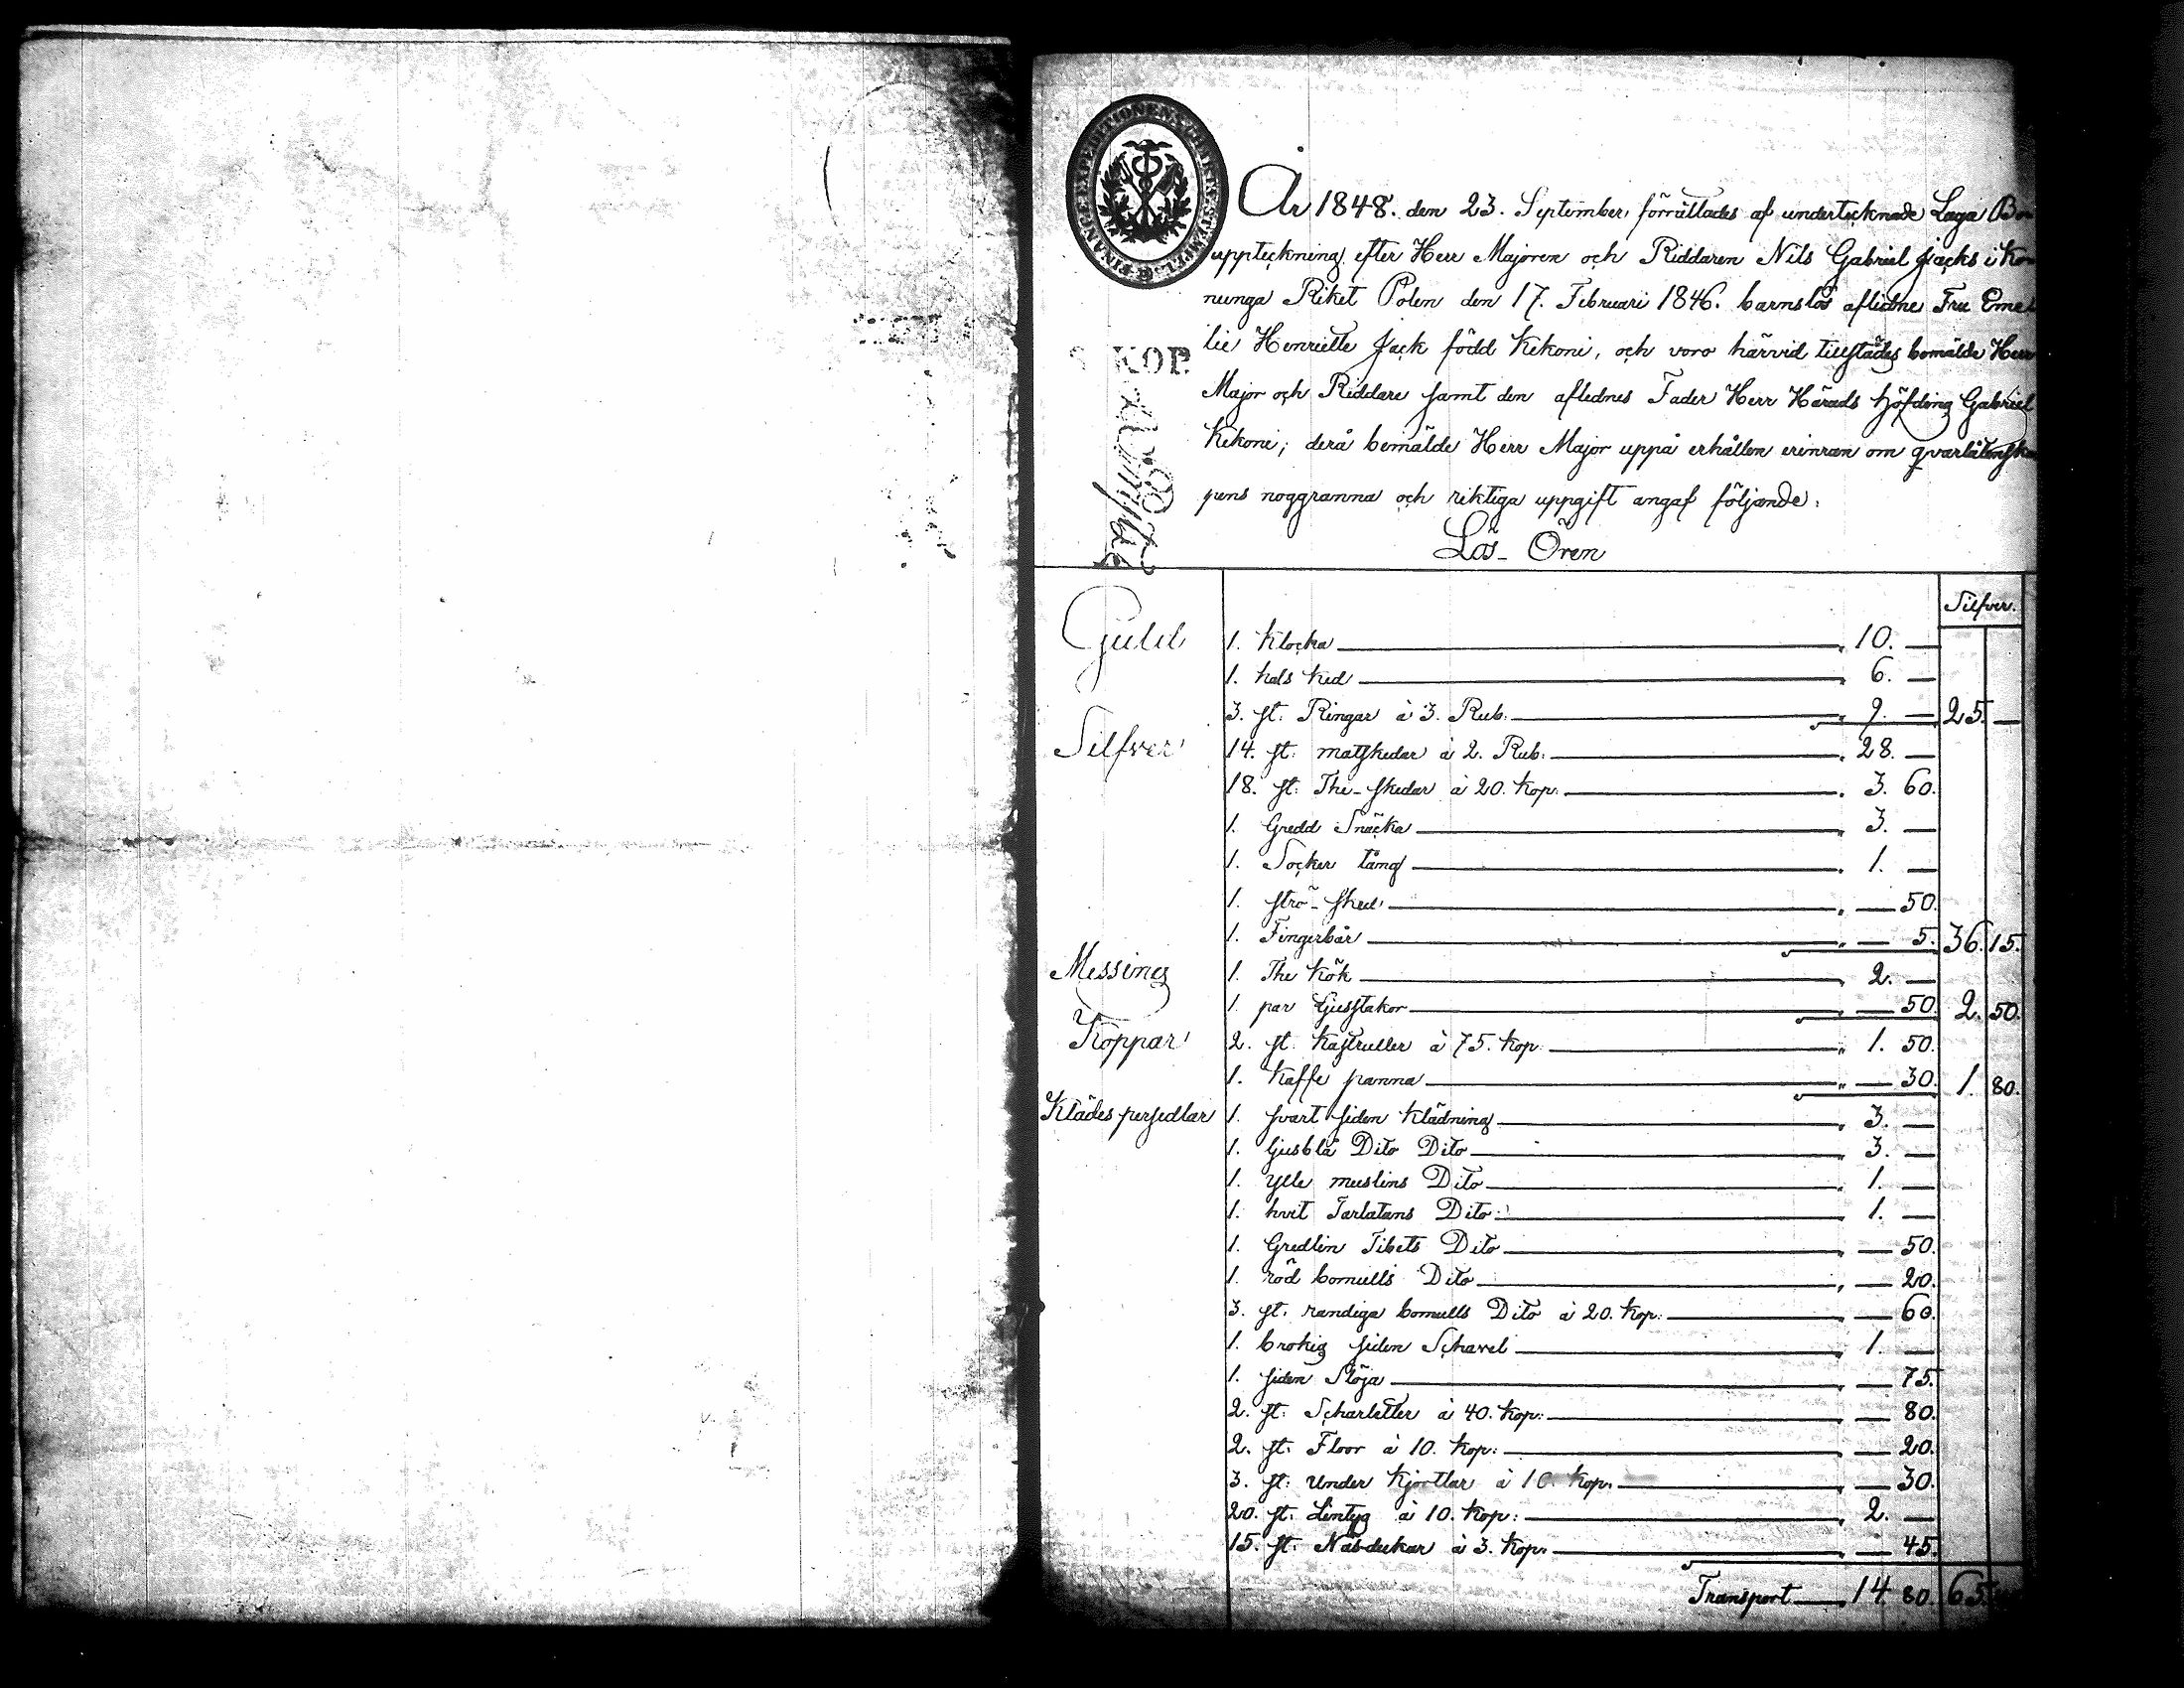 FINANCE EXPEDITIONENS CHARTÆ STEMPEL
År 1848. den 23. September, förrättades af undertecknade Laga Bo
uppteckning efter Herr Majoren och Riddaren Nils Gabriel Jacks i Ko
nunga Riket Polen den 17. Februari 1846. barnslös aflidne Fru Eme
lie Henriette Jack född Kekoni, och voro härvid tillstädes bemälde Herr
KOP.
Major och Riddare samt den aflednes Fader Herr Härads höfding Gabriel
Kekoni; derå bemälde Herr Major uppå erhållen erinran om qvarlåtenska
pens noggranna och riktiga uppgift angaf följande:
Lös- Ören
Silfver.
Guld 1. Klocka " 10. —
1. hals ked " 6. —
3. st. Ringar à 3. Rub. " 9. — 25. —
Silfver 14. st. matskedar à 2. Rub. " 28. —
18. st. The-skedar à 20. Kop. " 3. 60.
1. Gredd Snäcka " 3. —
1. Socker tång " 1. —
1. strö-sked " — 50.
1. Fingerbår " — 5. 36. 15.
Messing 1. The Kök " 2. —
1. par Ljusstakor " — 50. 2. 50.
Koppar 2. st. Kastruller à 75. Kop. " 1. 50.
1. Kaffe panna " — 30. 1. 80.
Klädes persedlar 1. svart siden Klädning " 3. —
1. ljusblå Dito Dito " 3. —
1. ylle muslins Dito " 1. —
1. hvit Tarlatans Dito " 1. —
1. Gredlin Tibets Dito " — 50.
1. röd bomulls Dito " — 20.
3. st. randiga bomulls Dito à 20. Kop. " — 60.
1. brokig siden Schavel " 1. —
1. siden Slöja " — 75.
2. st. Scharletter à 40. Kop. " — 80.
2. st. Floor à 10. Kop. " — 20.
3. st. Under Kjortlar à 10. Kop. " — 30.
20. st. Lintyg à 10. Kop. " 2. —
15. st. Näsdukar à 3. Kop. " — 45.
Transport " 14. 80. 65.